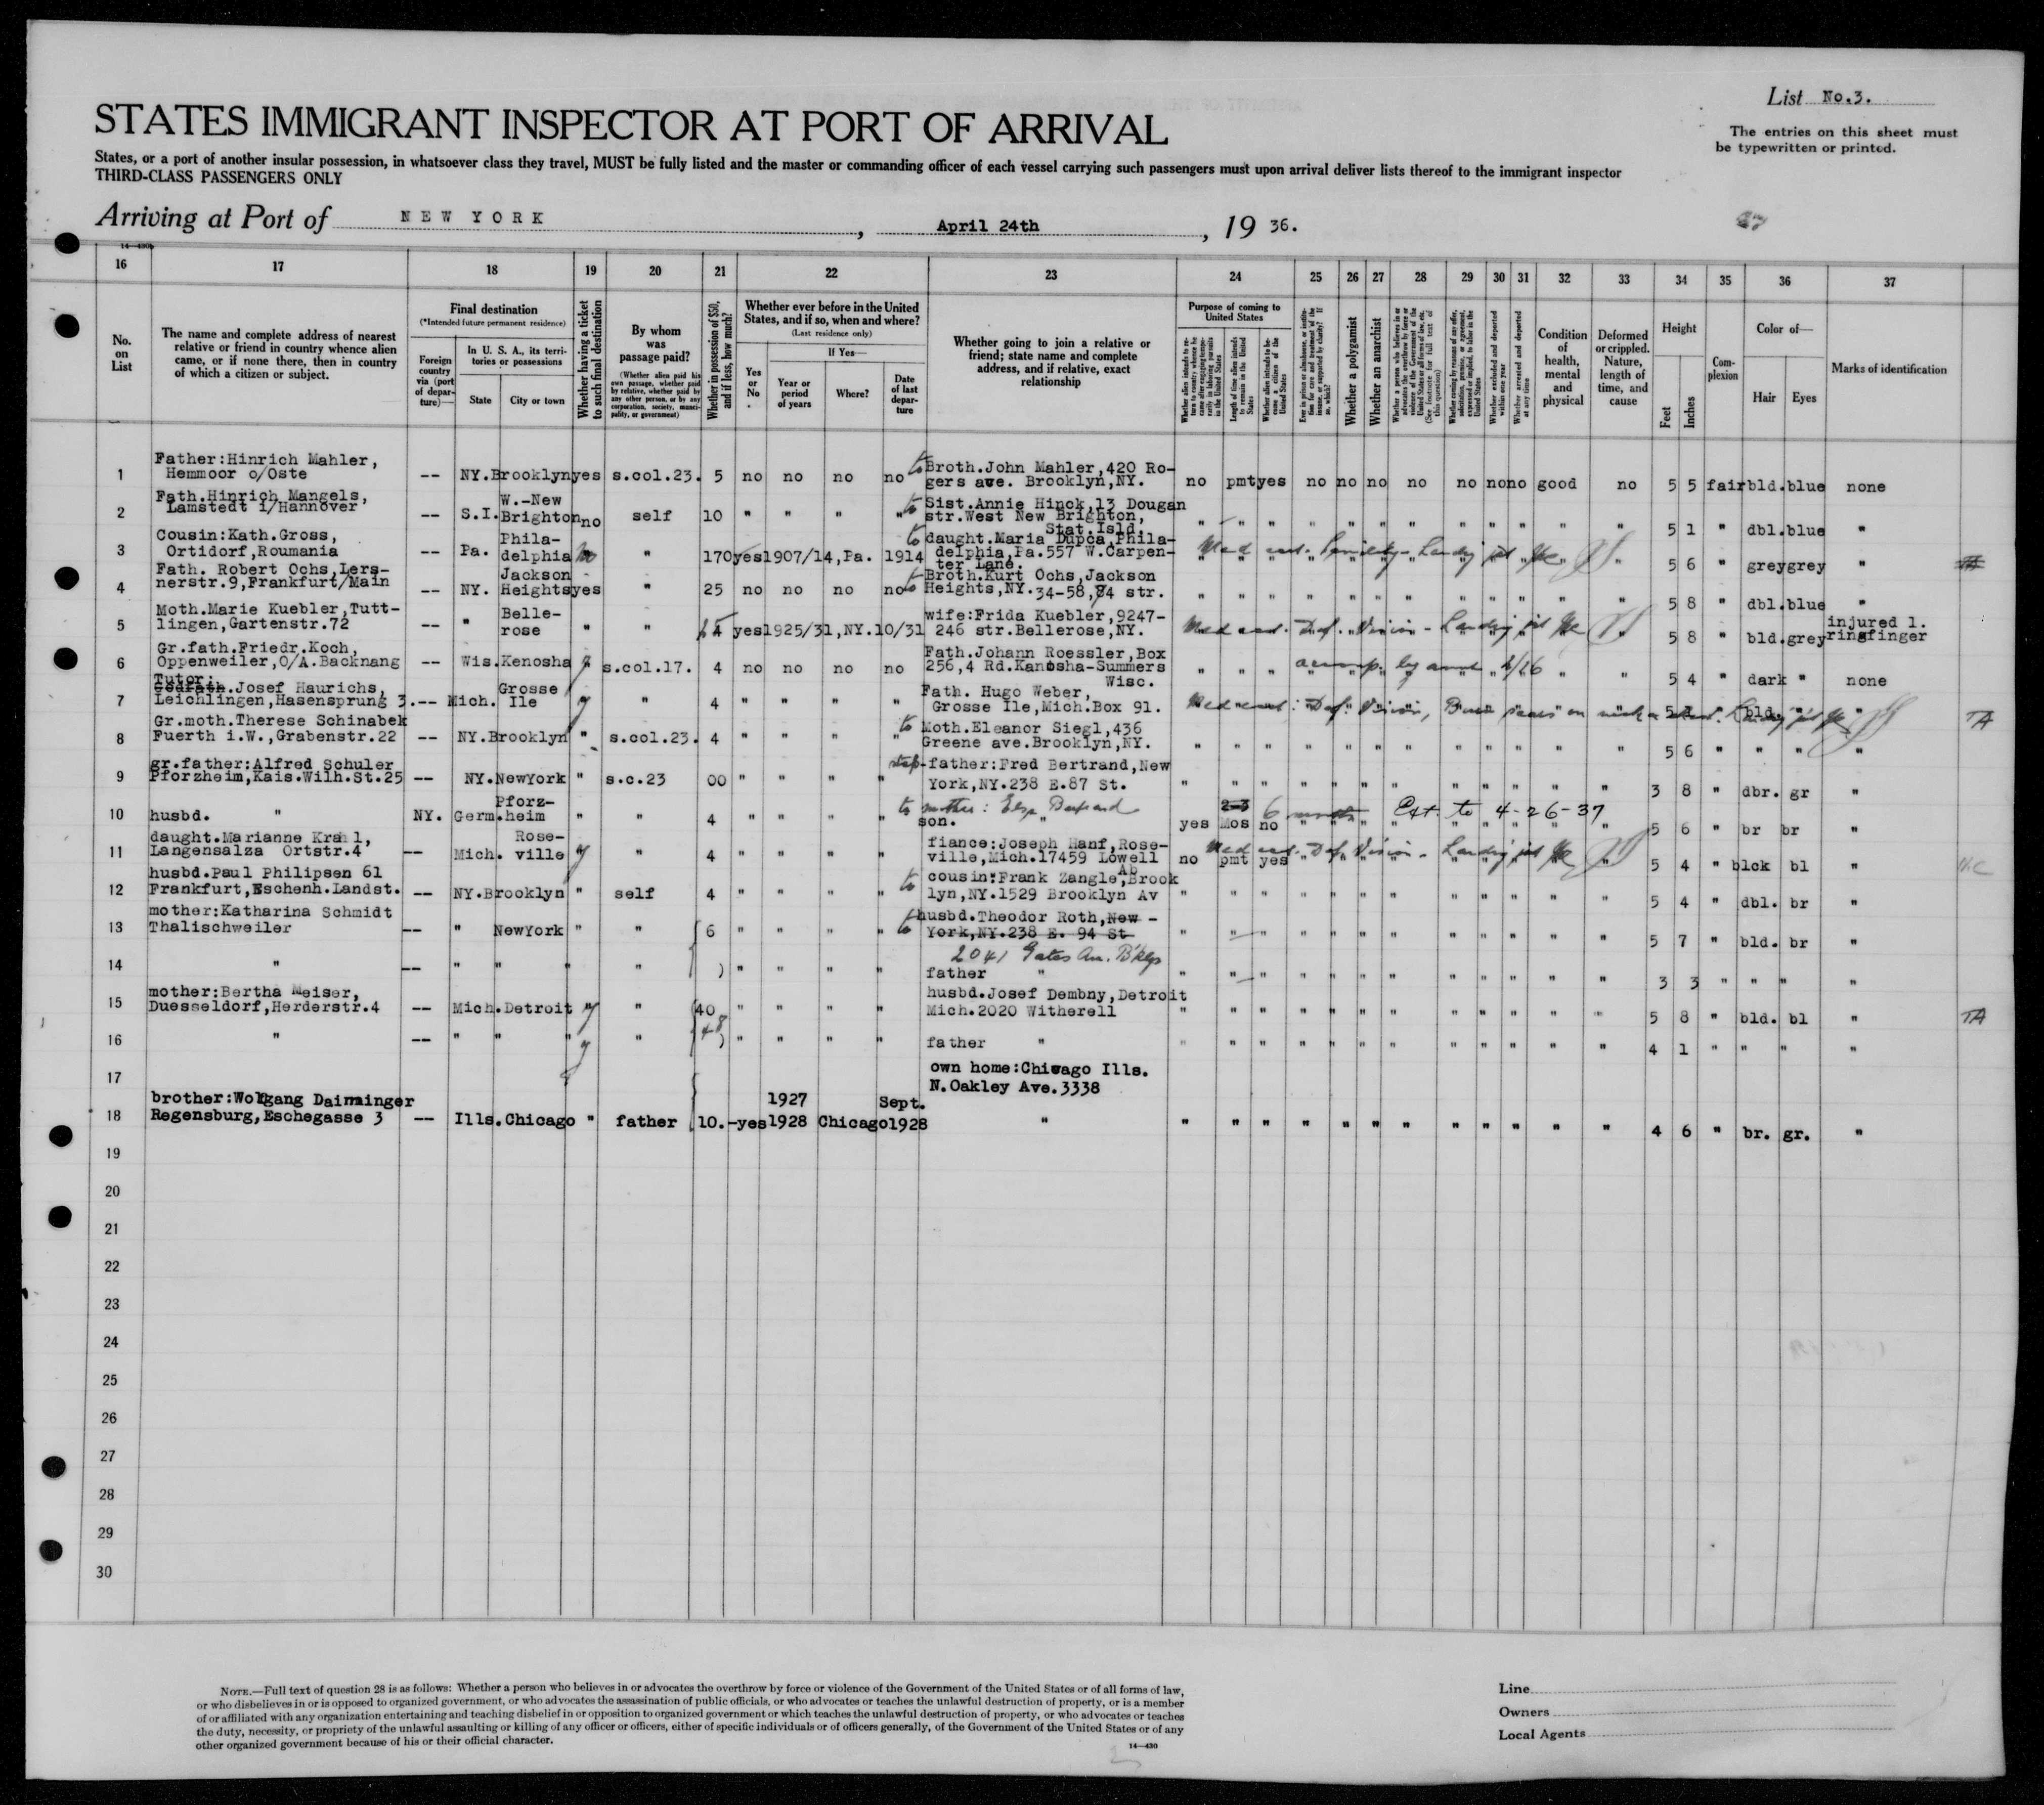 List No.3.
STATES IMMIGRANT INSPECTOR AT PORT OF ARRIVAL
The entries on this sheet must
be typewritten or printed.
States, or a port of another insular possession, in whatsoever class they travel, MUST be fully listed and the master or commanding officer of each vessel carrying such passengers must upon arrival deliver lists thereof to the immigrant inspector
THIRD-CLASS PASSENGERS ONLY
Arriving at Port of NEW YORK , April 24th , 19 36.
14—430b
16 17 18 19 20 21 22 23 24 25 26 27 28 29 30 31 32 33 34 35 36 37
No. on List
The name and complete address of nearest relative or friend in country whence alien came, or if none there, then in country of which a citizen or subject.
Final destination
(*Intended future permanent residence)
Foreign country via (port of departure)—
In U. S. A., its territories or possessions
State
City or town
Whether having a ticket to such final destination
By whom was passage paid?
(Whether alien paid his own passage, whether paid by relative, whether paid by any other person, or by any corporation, society, municipality, or government)
Whether in possession of $50, and if less, how much?
Whether ever before in the United States, and if so, when and where?
(Last residence only)
Yes or No
If Yes—
Year or period of years
Where?
Date of last departure
Whether going to join a relative or friend; state name and complete address, and if relative, exact relationship
Purpose of coming to United States
Whether alien intends to return to country whence he came after engaging temporarily in laboring pursuits in the United States
Length of time alien intends to remain in the United States
Whether alien intends to become a citizen of the United States
Ever in prison or almshouse, or institution for care and treatment of the insane, or supported by charity? If so, which?
Whether a polygamist
Whether an anarchist
Whether a person who believes in or advocates the overthrow by force or violence of the Government of the United States or all forms of law, etc. (See footnote for full text of this question)
Whether coming by reason of any offer, solicitation, promise, or agreement, expressed or implied, to labor in the United States
Whether excluded and deported within one year
Whether arrested and deported at any time
Condition of health, mental and physical
Deformed or crippled. Nature, length of time, and cause
Height
Feet
Inches
Complexion
Color of—
Hair
Eyes
Marks of identification
1 Father:Hinrich Mahler, Hemmoor o/Oste -- NY. Brooklyn yes s.col.23. 5 no no no no to Broth.John Mahler,420 Rogers ave. Brooklyn,NY. no pmt yes no no no no no no no good no 5 5 fair bld. blue none
2 Fath.Hinrich Mangels, Lamstedt i/Hannover -- S.I. W.-New Brighton no self 10 " " " " to Sist.Annie Hinck,13 Dougan str.West New Brighton, Stat.Isld. " " " " " " " " " " " " 5 1 " dbl. blue "
3 Cousin:Kath.Gross, Ortidorf,Roumania -- Pa. Philadelphia no " 170 yes 1907/14,Pa. 1914 to daught.Maria Dupca,Philadelphia,Pa.557 W.Carpenter Lane. Med cert. Senility - Landing 5 6 " grey grey "
4 Fath. Robert Ochs,Lersnerstr.9,Frankfurt/Main -- NY. Jackson Heights yes " 25 no no no no to Broth.Kurt Ochs,Jackson Heights,NY.34-58,84 str. " " " " " " " " " " " " 5 8 " dbl. blue "
5 Moth.Marie Kuebler,Tuttlingen,Gartenstr.72 -- " Bellerose " " yes 1925/31,NY. 10/31 wife:Frida Kuebler,9247-246 str.Bellerose,NY. Med cert. Def. Vision - Landing 5 8 " bld. grey injured l. ringfinger
6 Gr.fath.Friedr.Koch, Oppenweiler,O/A.Backnang -- Wis. Kenosha y s.col.17. 4 no no no no Fath.Johann Roessler,Box 256,4 Rd.Kanosha-Summers Wisc. " " " accomp. by aunt " " 5 4 " dark " none
7 Tutor: Godfath.Josef Haurichs, Leichlingen,Hasensprung 3. -- Mich. Grosse Ile y " 4 " " " " Fath. Hugo Weber, Grosse Ile,Mich.Box 91. Med cert: Def. Vision, Burn scars on neck 5 bld. " TA
8 Gr.moth.Therese Schinabek Fuerth i.W.,Grabenstr.22 -- NY. Brooklyn " s.col.23. 4 " " " " to Moth.Eleanor Siegl,436 Greene ave.Brooklyn,NY. " " " " " " " " " " " " 5 6 " " " "
9 gr.father:Alfred Schuler Pforzheim,Kais.Wilh.St.25 -- NY. NewYork " s.c.23 00 " " " " step-father:Fred Bertrand,New York,NY.238 E.87 St. " " " " " " " " " " " " 3 8 " dbr. gr "
10 husbd. " NY. Germ. Pforzheim " " 4 " " " " to mother: Else Bertrand son. " yes 2-3 Mos no 6 months Ext. to 4-26-37 5 6 " br br "
11 daught.Marianne Krahl, Langensalza Ortstr.4 -- Mich. Roseville y " 4 " " " " fiance:Joseph Hanf,Roseville,Mich.17459 Lowell no pmt yes Med cert. Def. Vision - Landing 5 4 " blck bl "
12 husbd.Paul Philipsen 61 Frankfurt,Eschenh.Landst. -- NY. Brooklyn " self 4 " " " " to cousin:Frank Zangle,Brooklyn,NY.1529 Brooklyn Av " " " " " " " " " " " " 5 4 " dbl. br "
13 mother:Katharina Schmidt Thalischweiler -- " NewYork " " 6 " " " " to husbd.Theodor Roth,New-York,NY.238 E. 94 St 2041 Gates Av. B'klyn " " " " " " " " " " " " 5 7 " bld. br "
14 " -- " " " " " " " " father " " " " " " " " " " " " " 3 3 " " " "
15 mother:Bertha Meiser, Duesseldorf,Herderstr.4 -- Mich. Detroit y " 40 " " " " husbd.Josef Dembny,Detroit Mich.2020 Witherell " " " " " " " " " " " " 5 8 " bld. bl " TA
16 " -- " " " y " " " " " father " " " " " " " " " " " " " 4 1 " " " "
17 own home:Chicago Ills. N.Oakley Ave.3338
18 brother:Wolfgang Daiminger Regensburg,Eschegasse 3 -- Ills. Chicago " father 10.- yes 1927 1928 Chicago Sept. 1928 " " " " " " " " " " " " " 4 6 " br. gr. "
19
20
21
22
23
24
25
26
27
28
29
30
NOTE.—Full text of question 28 is as follows: Whether a person who believes in or advocates the overthrow by force or violence of the Government of the United States or of all forms of law,
or who disbelieves in or is opposed to organized government, or who advocates the assassination of public officials, or who advocates or teaches the unlawful destruction of property, or is a member
of or affiliated with any organization entertaining and teaching disbelief in or opposition to organized government or which teaches the unlawful destruction of property, or who advocates or teaches
the duty, necessity, or propriety of the unlawful assaulting or killing of any officer or officers, either of specific individuals or of officers generally, of the Government of the United States or of any
other organized government because of his or their official character.
14—430
Line
Owners
Local Agents